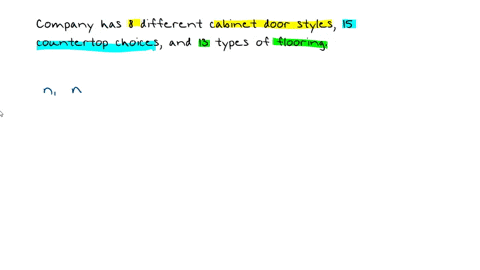 Company has 8 different cabinet door styles, 15
countertop choices, and 13 types of flooring.
n, n